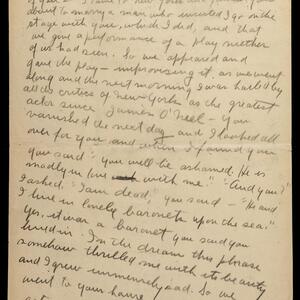 about to marry a man who insisted I go on the
stage with you, which I did, and that
we give a performance of a play neither
of us had seen. So we appeared and
gave the play - improvising it, as we went
along and the next morning I was hailed by
all the critics of New York as the greatest
actor since James O'Neil - You
vanished the next day and I looked all
over for you and when I found you
you said "you will be ashamed. He is
madly in love with me." "And you?"
I asked. "I am dead," you said - "He and
I live in lonely baronetcy upon the sea."
Yes, it was a baronet you said you
lived in. In the dream this phrase
somehow thrilled me with its beauty
and I grew immensely sad. So we
went to your house